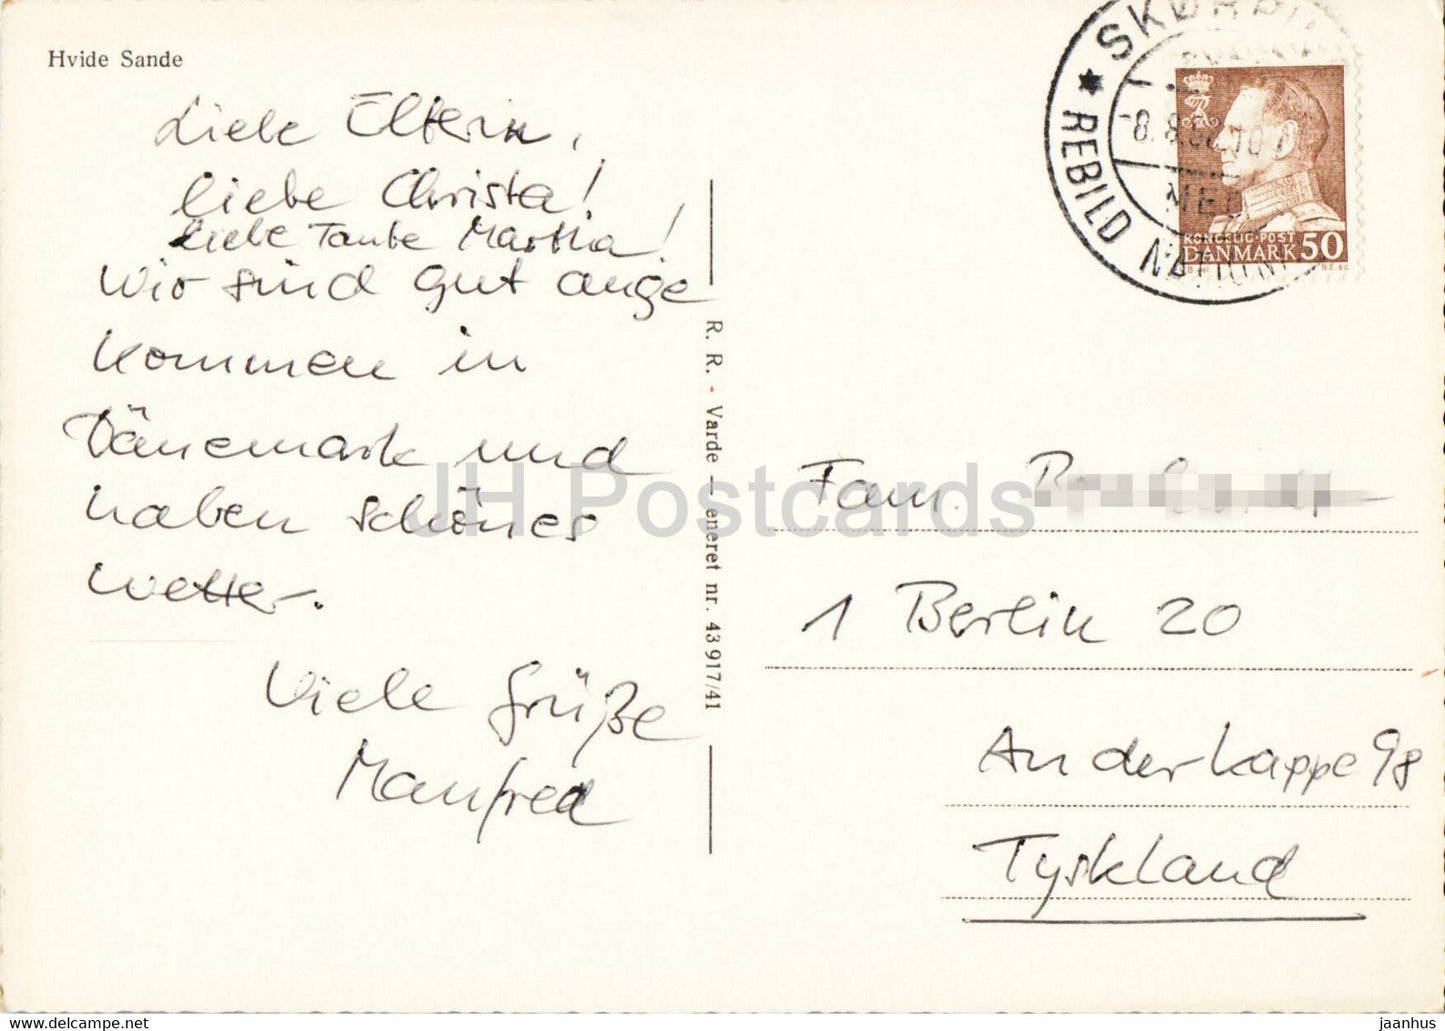 Hvide Sande
Liebe Eltern,
liebe Christa!
liebe Tante Martha!
Wir sind gut ange
kommen in
Dänemark und
haben schönes
Wetter.
Viele Grüße
Manfred
R. R. - Varde — eneret nr. 43917/41
REBILD
KONGELIG·POST
DANMARK 50
Fam.
1 Berlin 20
An der Kappe 98
Tyskland
JH Postcards
https://www.jh-postcards.com
jaanhus